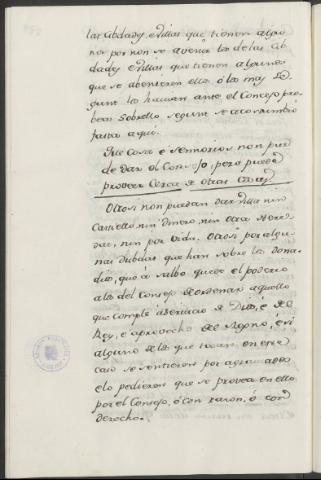 las cibdades, e villas que tienen algu
nos por non se avenir los de las cib
dades e villas que tienen algunos
que se abenieren ellos ó los mas se
gunt los hauian ante el Consejo pro
bean sobrello, segunt se acostumbró
fasta aqui.
Que cosas e Semorios non pue
de dar el Consejo, pero puede
proveer cerca de otras cosas
Otrosi non puedan dar villa nin
Castiello, nin dinero, nin otra Mor
dat, nin por vida. Otrosi por algu
nas dubdas que han sobre los dona
dios, que á salbo quede el poderio
a los del Consejo de ordenar aquello
que comple á servicio de Dios, é del
Rey, é á provecho del Regno, é si
alguno de los que ivan en este
caso se sentieren por agraviados
e lo pedieren que se provea en ello
por el Consejo, ó con razon, ó con
derecho.